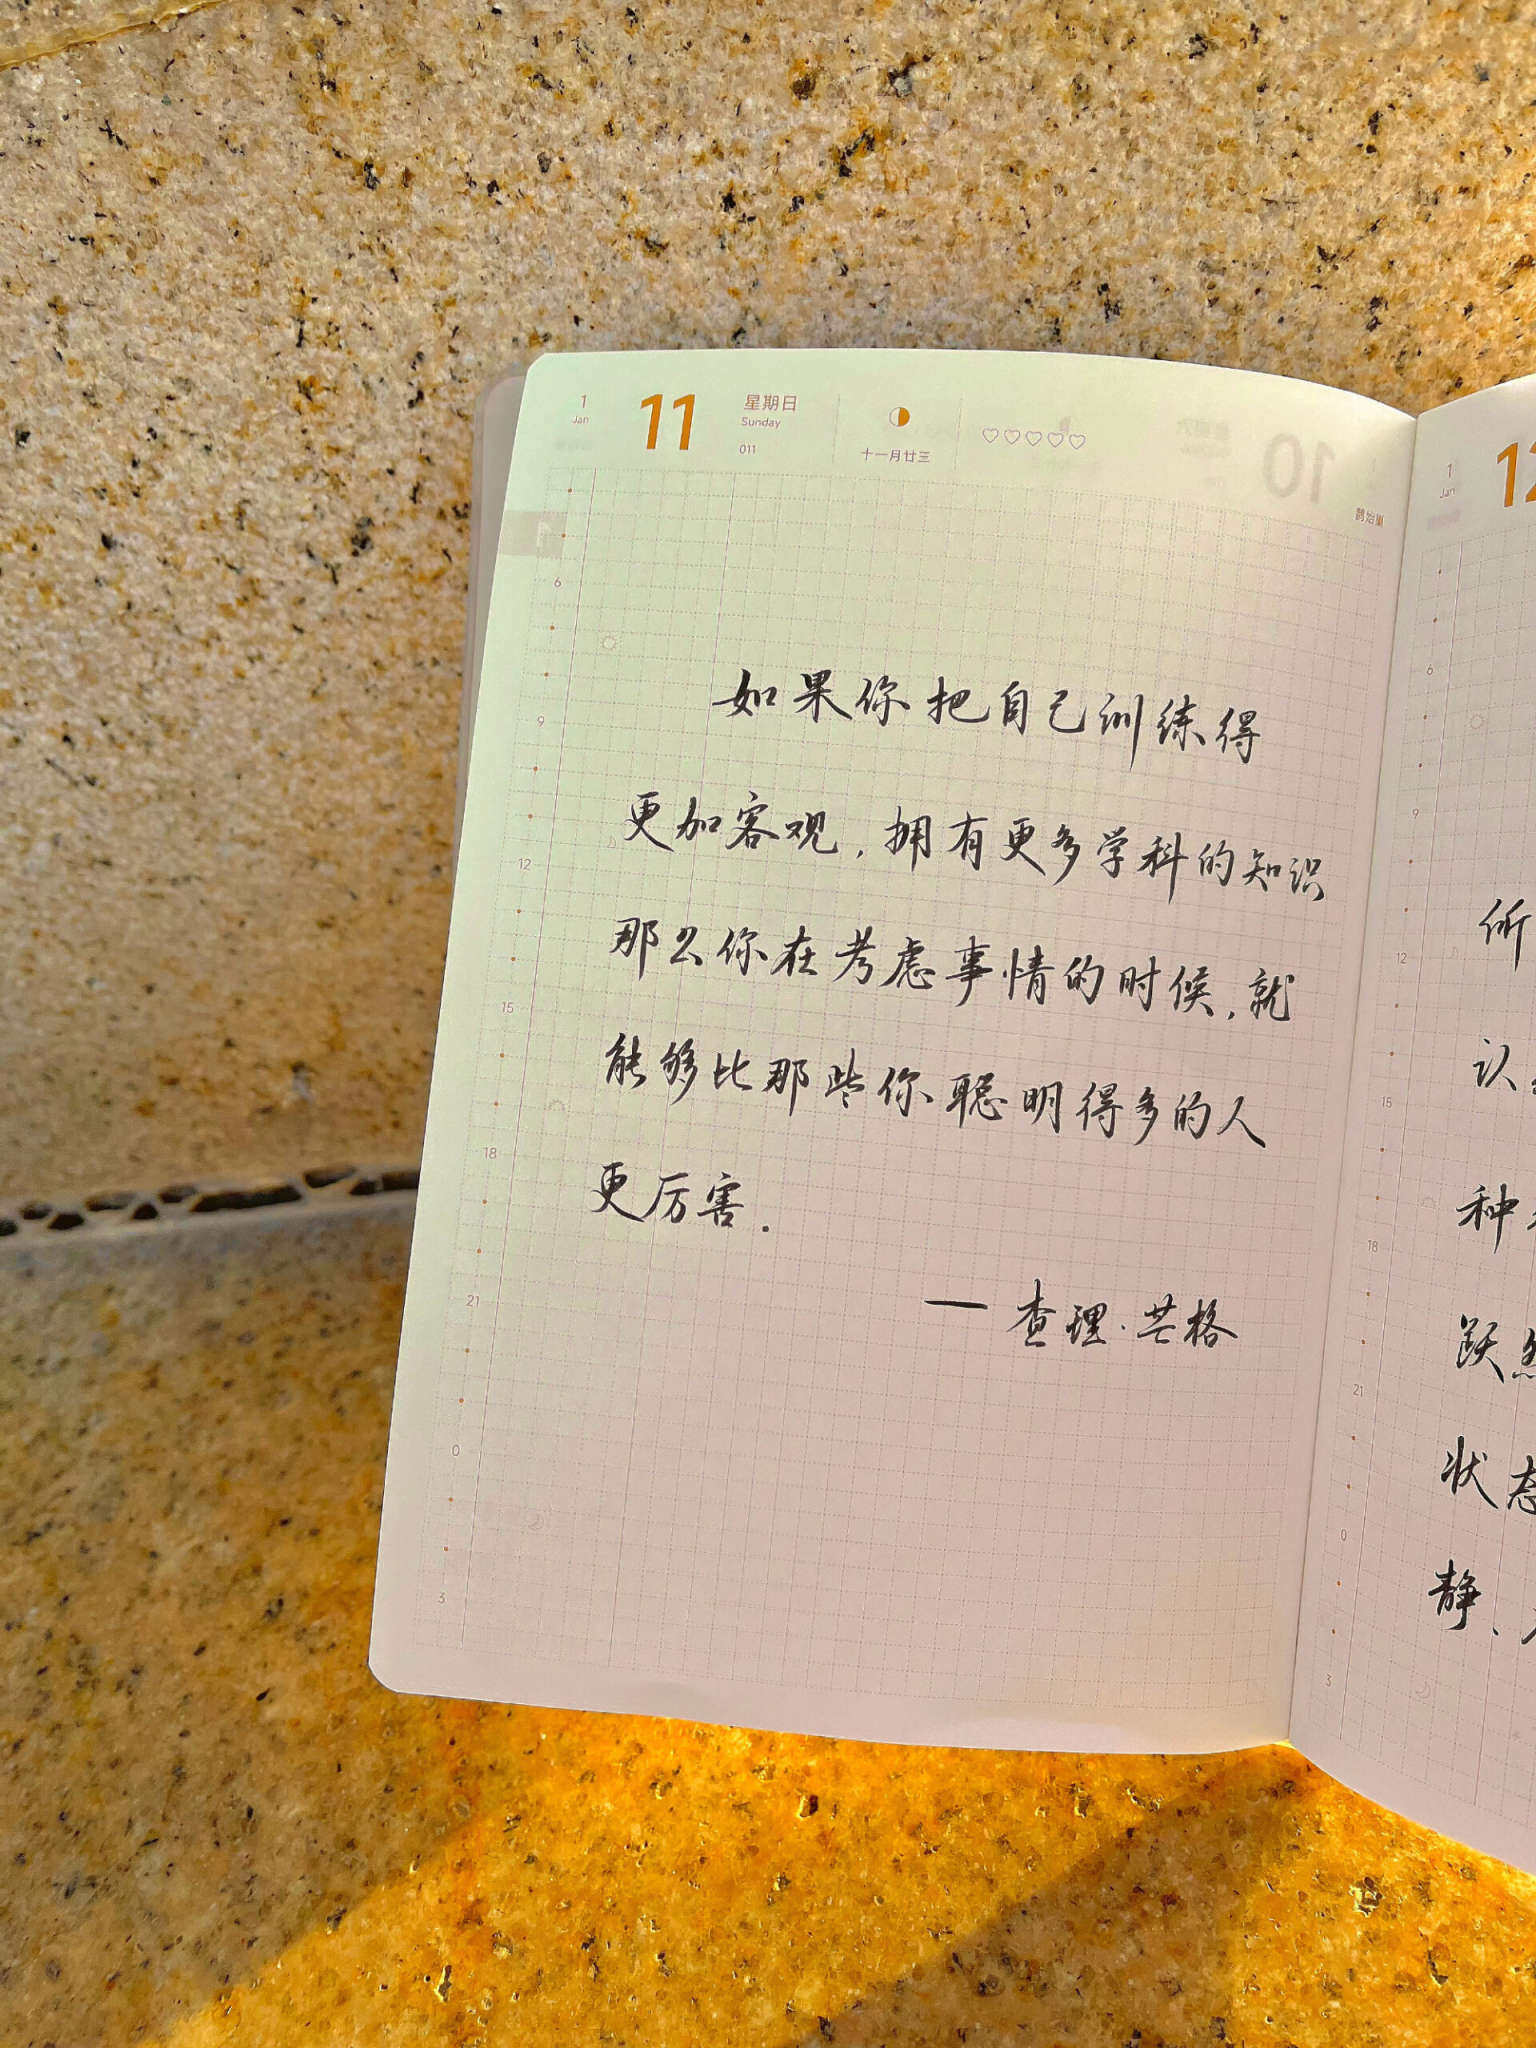 1
Jan
11
星期日
Sunday
011
十一月廿三
10
鹊始巢
1
6
9
12
15
18
21
0
3
如果你把自己训练得
更加客观，拥有更多学科的知识
那么你在考虑事情的时候，就
能够比那些你聪明得多的人
更厉害.
— 查理·芒格
1
Jan
12
6
9
12
15
18
21
0
3
所
认
种
跃然
状态
静、